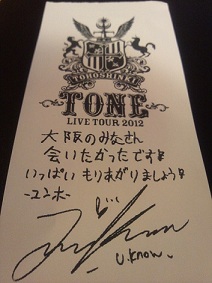 TOHOSHINKI
TONE
LIVE TOUR 2012
大阪のみなさん
会いたかったです!
いっぱい もりあがりましょう!
-ユンホ-
U.know